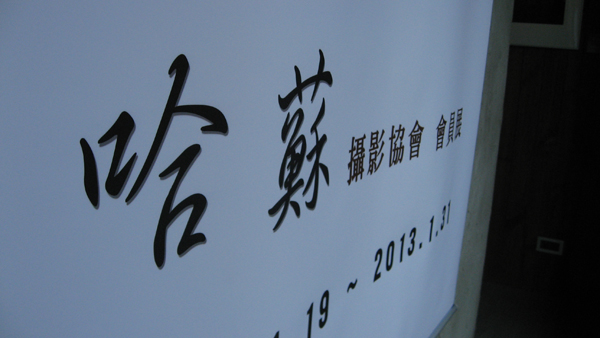 哈蘇攝影協會 會員展
1.19 ~ 2013.1.31